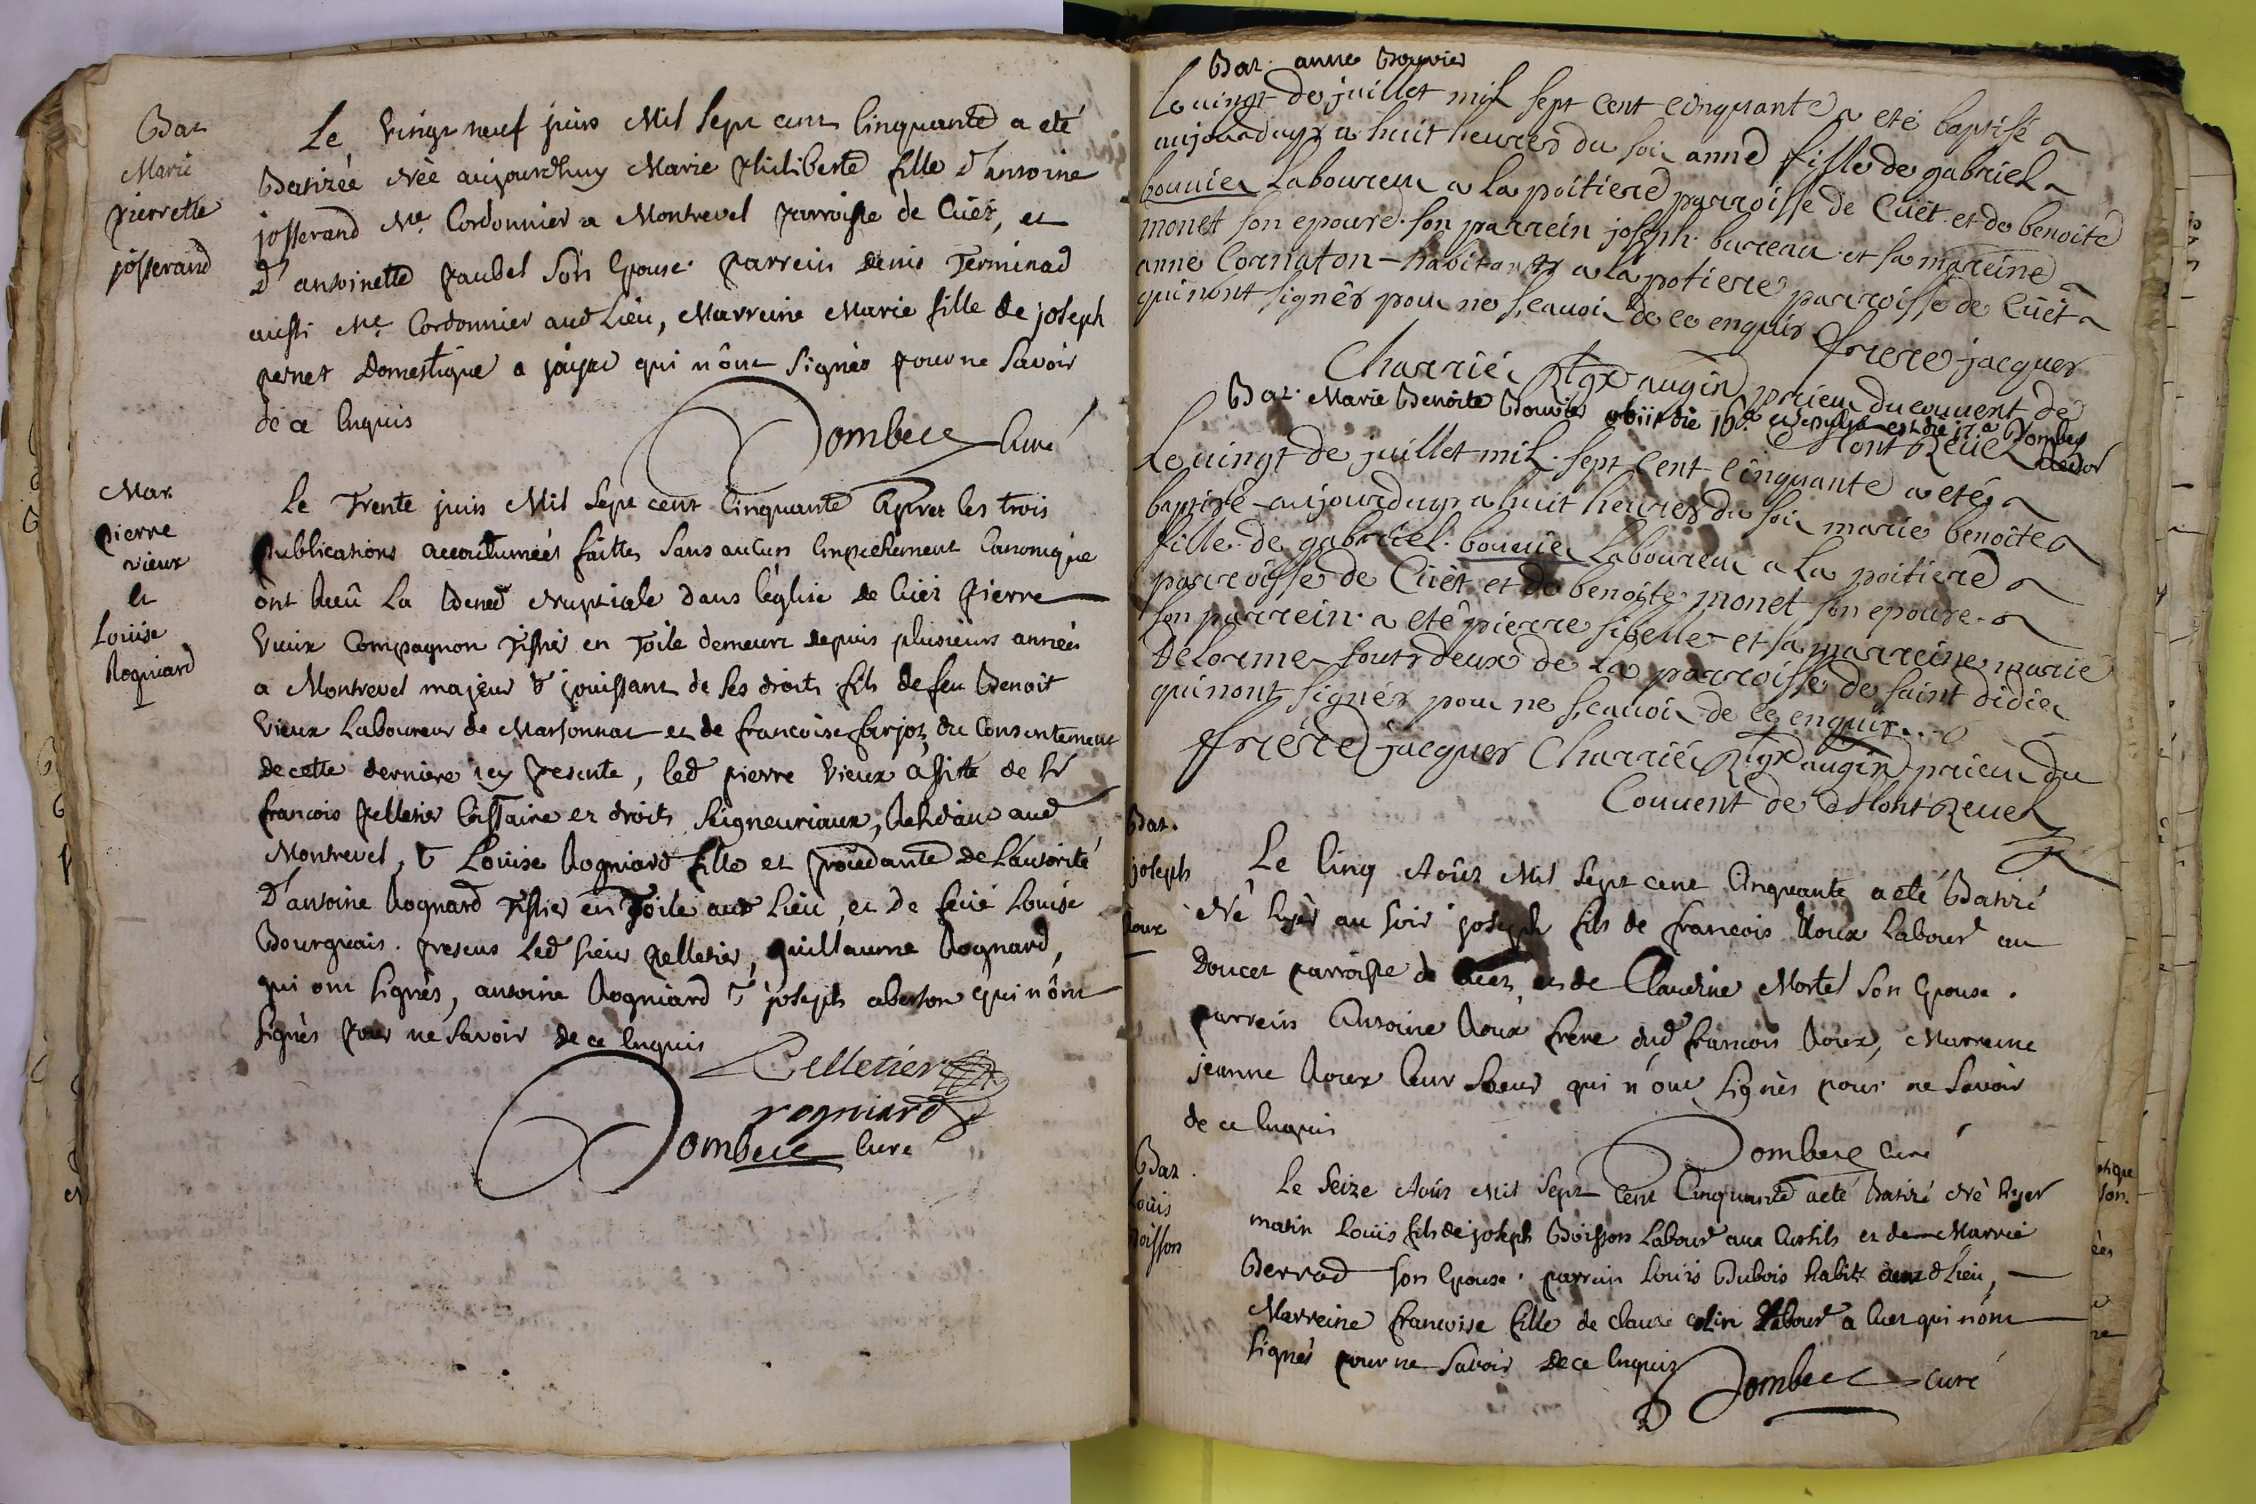 Bat
Marie
pierrette
josserand
Le Vingt neuf juin Mil Sept cent Cinquante a eté
Batizée Née aujourdhuy Marie Philiberte fille d'antoine
josserand Me. Cordonnier a Montrevel parroisse de Cuet, et
D'antoinette paubel Son Epouse. parrein Denis Terminad
aussi Me. Cordonnier aud Lieu, Marreine Marie fille de joseph
pernet Domestique a qui n'ont Signés pour ne Savoir
de ce Enquis
Dombeee Curé
Mar
pierre
vieux
et
Louise
Rogniard
Le Trente juin Mil Sept cent Cinquante Après les trois
publications accoutumées faittes Sans aucun Empechement Canonique
ont Reçû La Bened Nuptiale dans l'église de Cuet Pierre
Vieux Compagnon Tissier en Toile demeurt depuis plusieurs années
a Montrevel majeur & jouissant de Ses droits fils de feu Benoit
Vieux Laboureur de Marsonnat et de francoise farjot, du Consentement
de cette derniere icy presente, led pierre Vieux Assisté de Sr
francois Pelletier en droits Seigneuriaux, aud
Montrevel, & Louise Rogniard fille et procedante de L'autorité
D'antoine Rognard Tissier en Toile aud Lieu, et De feüe Louise
Bourguais. presens Led Sieur pelletier, guillaume Rognard,
qui ont Signés, antoine Rogniard & joseph qui n'ont
Signés pour ne Savoir de ce Enquis
Pelletier
rogniard
Dombeee Curé
Bat. anne Bouvier
Le vingt de juillet mil sept cent cinquante a eté baptisé
aujourduy a huit heures du soir anne fille de gabriel
bouvier Laboureur a La poitiere parroisse de Cüet et de benoite
monet son epouse. son parrein joseph bureau et sa mareine
anne Cornaton habitants a la potiere parroisse de Cüet
qui nont signér pour ne scavoir de ce enquis frere jacquer
Charrié Rlgx augin prieur du couvent de
MontReuel
Bat. Marie Benoite Bouvier obiit die 16a et sepulta est die 17a Dombeee
Le vingt de juillet mil sept cent cinquante a eté
baptisé aujourduy a huit heures du soir marie benoite
fille de gabriel bouvier Laboureur a La poitiere
parroisse de Cüet et de benoite monet son epouse.
son parrein a eté pierre sibelle et sa marreine marie
Delorme touts deux de La parroisse de saint didier
qui nont signér pour ne scavoir de ce enquis.
frere jacquer Charrié Rlgx augin prieur du
Couvent de MontReuel
Bat.
joseph
Roux
Le Cinq Aoûst Mil Sept cent Cinquante a eté Batizé
Né hyer au Soir joseph fils de francois Roux Labour au
Doucet parroisse de Cuet, et de Claudine Mortel Son Epouse.
parrein Antoine Roux frere dud francois Roux, Marreine
jeanne Roux leur Soeur qui n'ont Signés pour ne Savoir
de ce Enquis
Dombeee Curé
Bat
Loüis
Boisson
Le Seize Aoûst Mil Sept Cent Cinquante a eté Batizé Né hyer
matin Loüis fils de joseph Boisson Labour aux Curtils et de Marrie
Berrod Son Epouse. parrein Loüis Dubois habitt aud Lieu,
Marreine francoise fille de claude colin Labour a Cuet qui n'ont
Signés pour ne Savoir de ce Enquis
Dombeee Curé